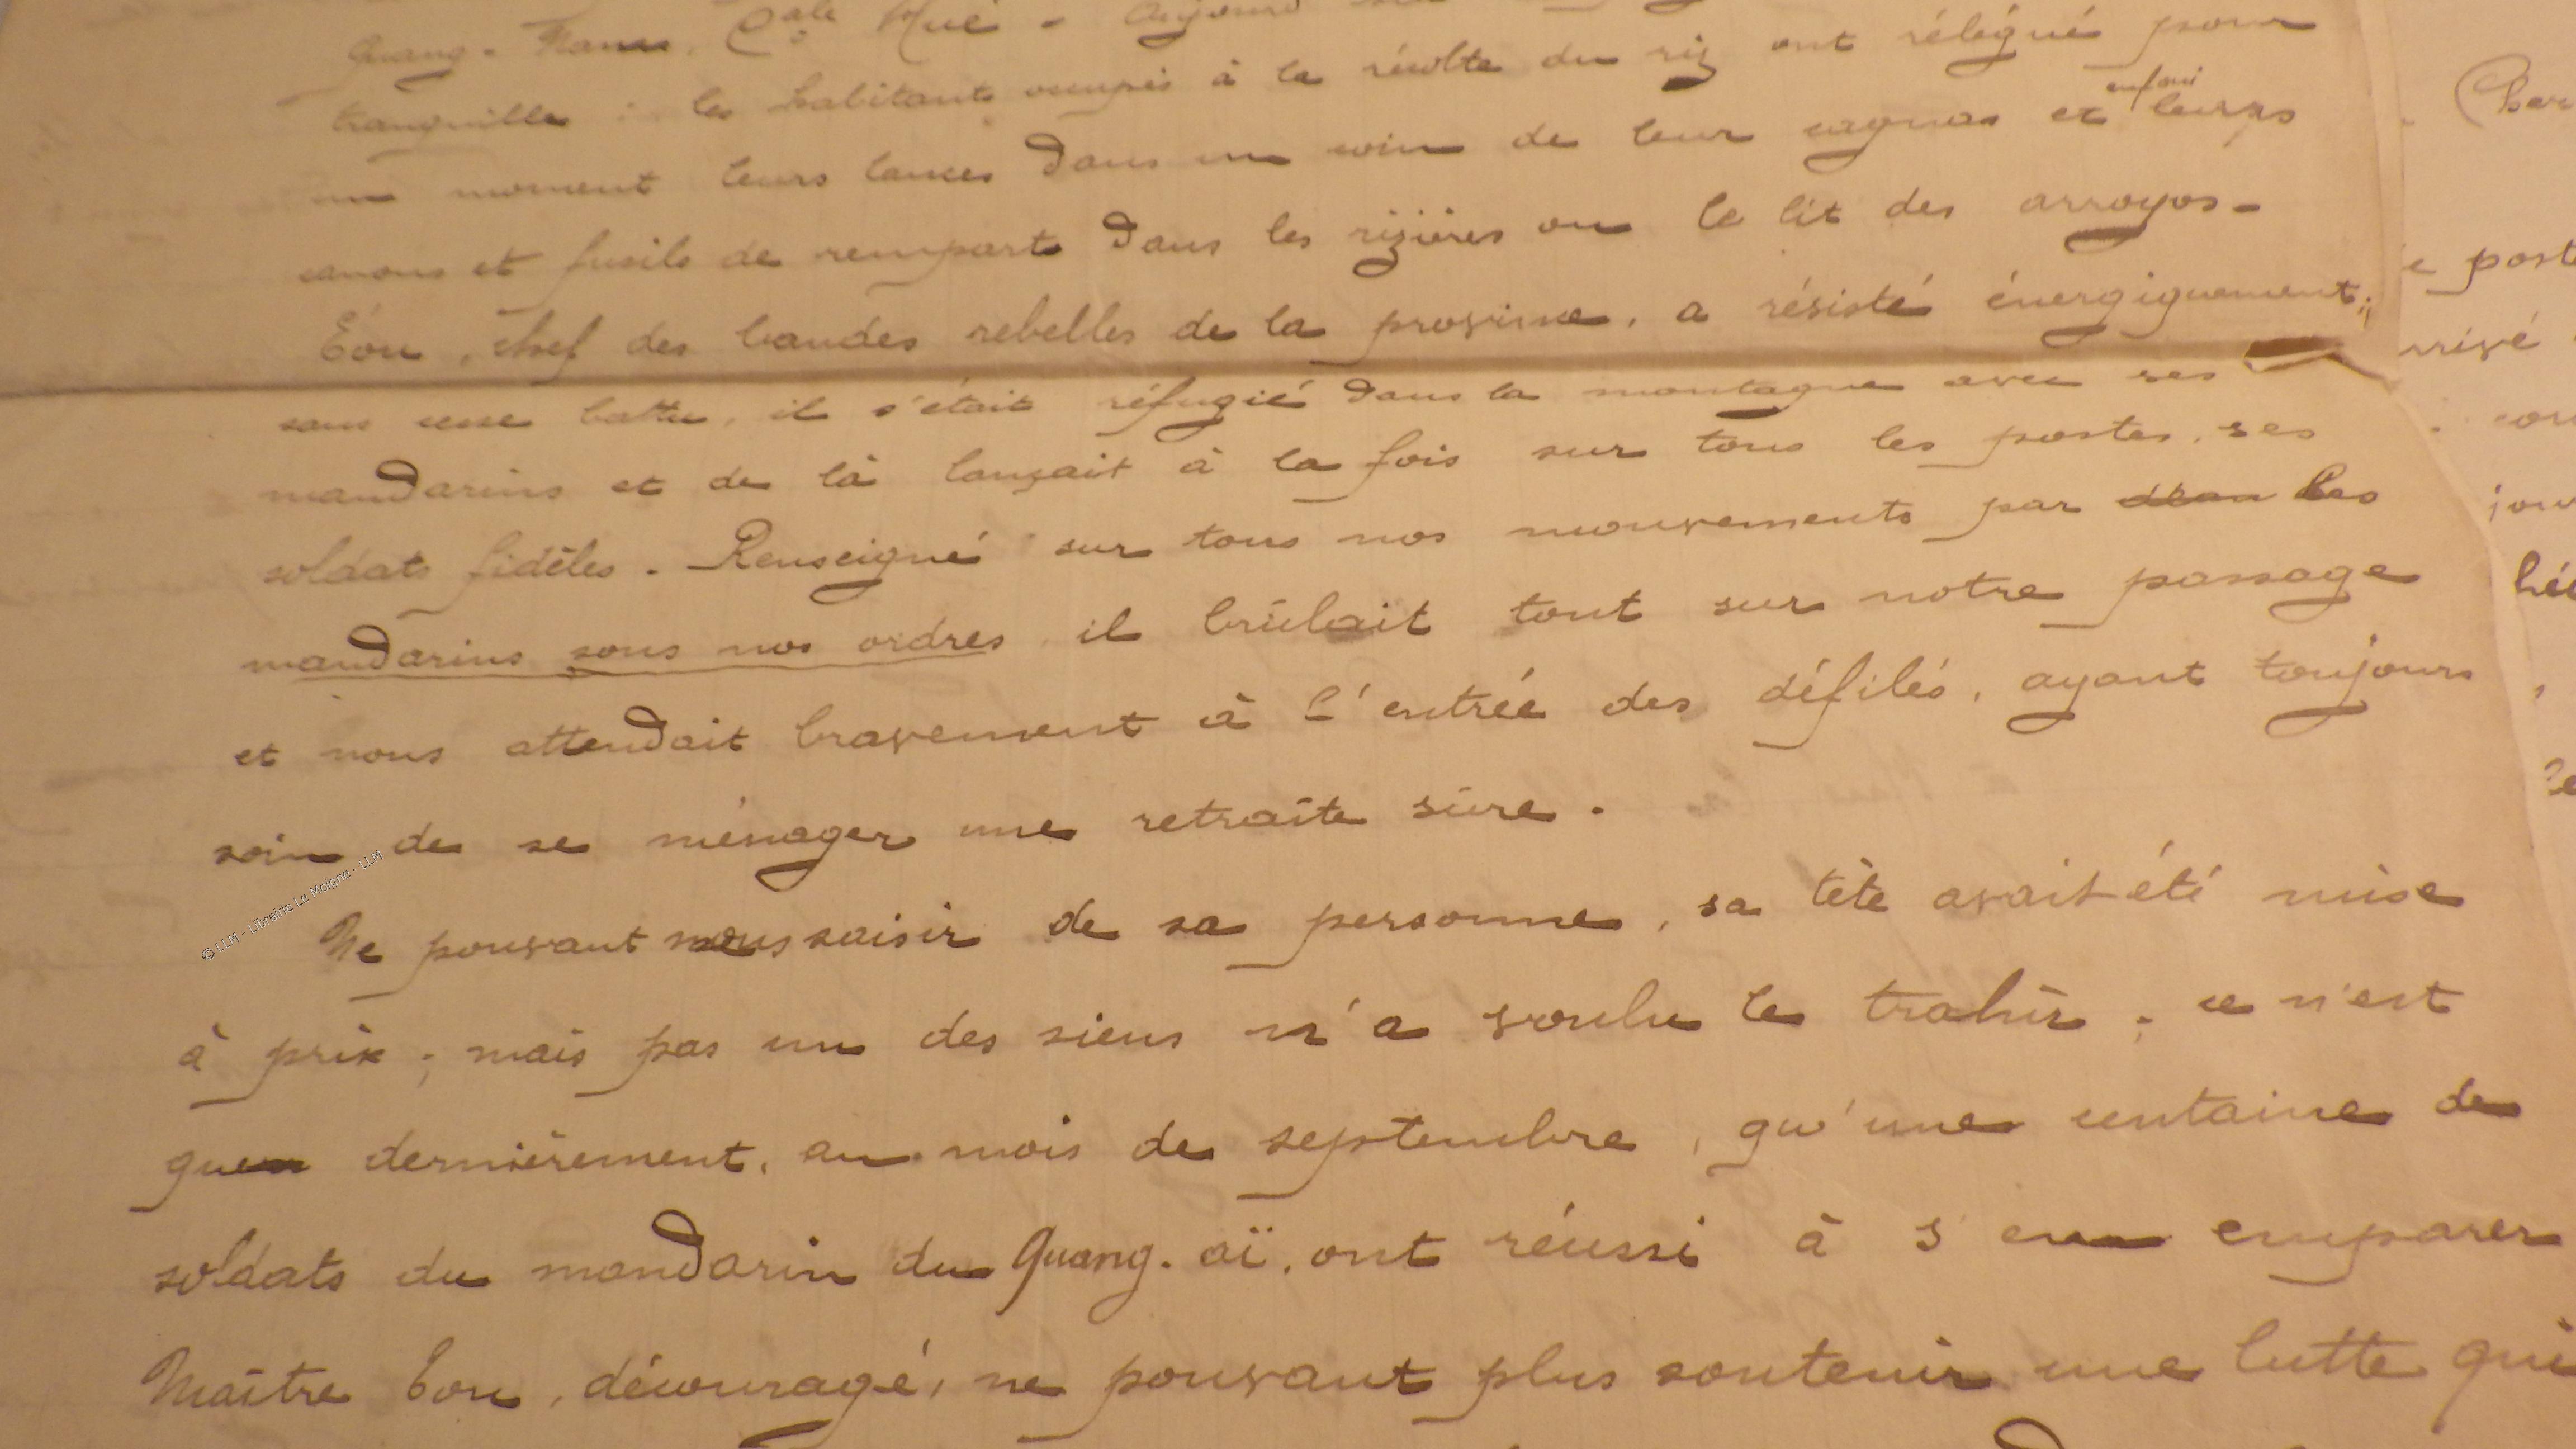 Quang-Nam, Cale Hué - Aujourd
tranquille : les habitants occupés à la récolte du riz ont rélégué pour
un moment leurs lances dans un coin de leur cagnas et enfoui leurs
canons et fusils de remparts dans les rizières ou le lit des arroyos -
Eon, chef des bandes rebelles de la province, a résisté énergiquement;
sans cesse battu, il s'était réfugié dans la montagne avec ses
mandarins et de là lançait à la fois sur tous les postes, ses
soldats fidèles. Renseigné sur tous nos mouvements par les
mandarins sous nos ordres il brûlait tout sur notre passage
et nous attendait bravement à l'entrée des défilés, ayant toujours
soin de se ménager une retraîte sûre.
© LLM - Librairie Le Moigne - LLM
Ne pouvant nous saisir de sa personne, sa tète avait été mise
à prix ; mais pas un des siens n'a voulu le trahir ; ce n'est
que dernièrement, au mois de septembre, qu'une centaine de
soldats du mandarin du Quang-aï, ont réussi à s'en emparer
Maître Eon, découragé, ne pouvant plus soutenir une lutte qui
Cher
e post
rrivé
jou